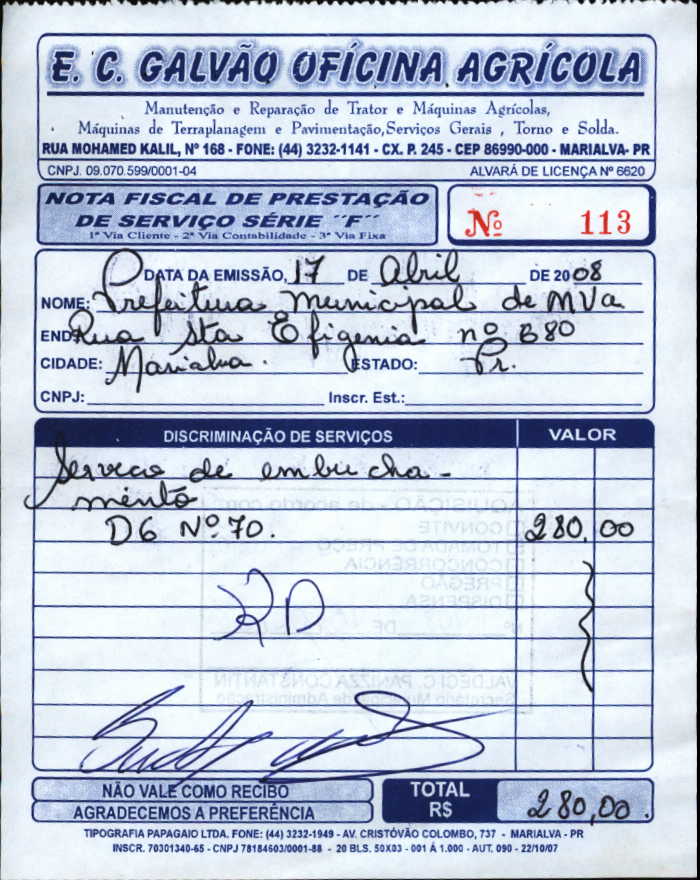 E. C. GALVÃO OFÍCINA AGRÍCOLA
Manutenção e Reparação de Trator e Máquinas Agrícolas,
Máquinas de Terraplanagem e Pavimentação,Serviços Gerais , Torno e Solda.
RUA MOHAMED KALIL, Nº 168 - FONE: (44) 3232-1141 - CX. P. 245 - CEP 86990-000 - MARIALVA- PR
CNPJ. 09.070.599/0001-04 ALVARÁ DE LICENÇA Nº 6620
NOTA FISCAL DE PRESTAÇÃO
DE SERVIÇO SÉRIE ´´F´´
1ª Via Cliente - 2ª Via Contabilidade - 3ª Via Fixa
Nº 113
DATA DA EMISSÃO, 17 DE Abril DE 2008
NOME: Prefeitura municipal de MVa
END Rua Sta Efigenia nº 680
CIDADE: Marialva. ESTADO: Pr.
CNPJ: Inscr. Est.:
DISCRIMINAÇÃO DE SERVIÇOS VALOR
Servico de embucha-
mento
D6 Nº 70. 280,00
RD
AQUISIÇÃO - de acordo com
CONVITE
TOMADA DE PREÇO
CONCORRÊNCIA
PREGÃO
DISPENSA
Nº DE
VALDECI C. PANIZZA CONSTANTIN
Secretário Municipal de Administração
NÃO VALE COMO RECIBO
AGRADECEMOS A PREFERÊNCIA
TOTAL
R$ 280,00.
TIPOGRAFIA PAPAGAIO LTDA. FONE: (44) 3232-1949 - AV. CRISTÓVÃO COLOMBO, 737 - MARIALVA - PR
INSCR. 70301340-65 - CNPJ 78184603/0001-88 - 20 BLS. 50X03 - 001 Á 1.000 - AUT. 090 - 22/10/07